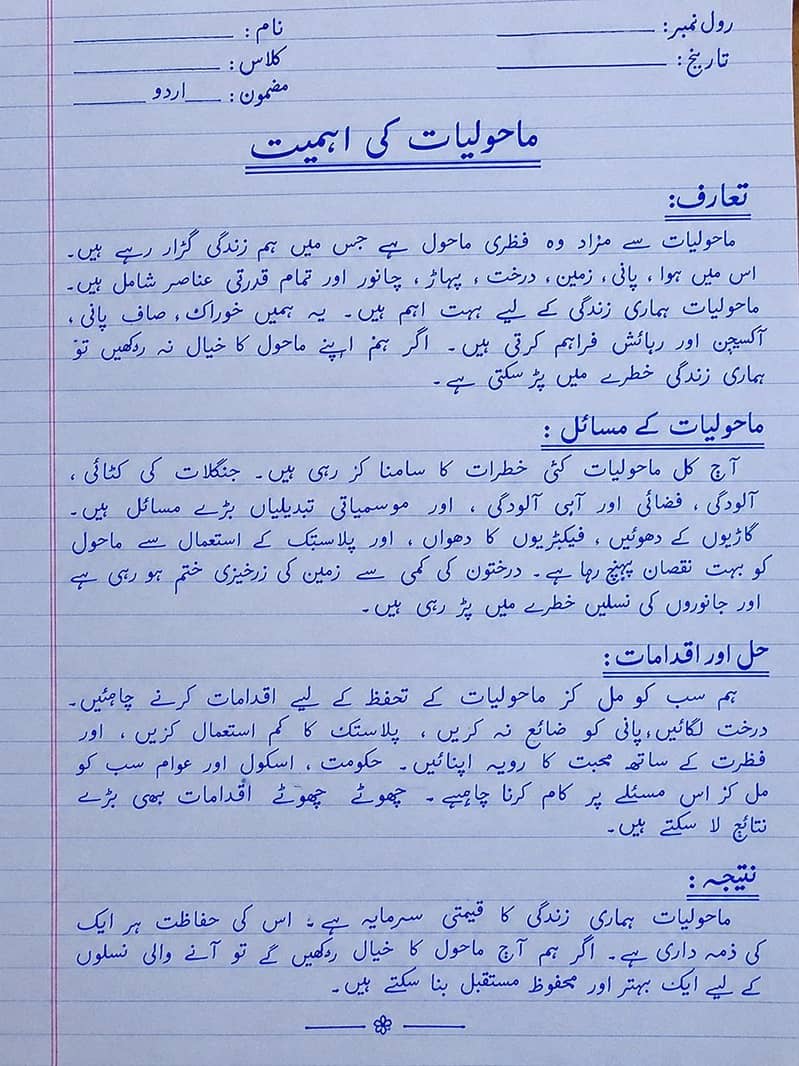 رول نمبر: ____________ نام: ____________
تاریخ: ____________ کلاس: ____________
مضمون: ___اردو______
ماحولیات کی اہمیت
تعارف:
ماحولیات سے مراد وہ فطری ماحول ہے جس میں ہم زندگی گزار رہے ہیں۔
اس میں ہوا، پانی، زمین، درخت، پہاڑ، جانور اور تمام قدرتی عناصر شامل ہیں۔
ماحولیات ہماری زندگی کے لیے بہت اہم ہیں۔ یہ ہمیں خوراک، صاف پانی،
آکسیجن اور رہائش فراہم کرتی ہیں۔ اگر ہم اپنے ماحول کا خیال نہ رکھیں تو
ہماری زندگی خطرے میں پڑ سکتی ہے۔
ماحولیات کے مسائل:
آج کل ماحولیات کئی خطرات کا سامنا کر رہی ہیں۔ جنگلات کی کٹائی،
آلودگی، فضائی اور آبی آلودگی، اور موسمیاتی تبدیلیاں بڑے مسائل ہیں۔
گاڑیوں کے دھوئیں، فیکٹریوں کا دھواں، اور پلاسٹک کے استعمال سے ماحول
کو بہت نقصان پہنچ رہا ہے۔ درختون کی کمی سے زمین کی زرخیزی ختم ہو رہی ہے
اور جانوروں کی نسلیں خطرے میں پڑ رہی ہیں۔
حل اور اقدامات:
ہم سب کو مل کر ماحولیات کے تحفظ کے لیے اقدامات کرنے چاہئیں۔
درخت لگائیں، پانی کو ضائع نہ کریں، پلاستک کا کم استعمال کریں، اور
فطرت کے ساتھ محبت کا رویہ اپنائیں۔ حکومت، اسکول اور عوام سب کو
مل کر اس مسئلے پر کام کرنا چاہیے۔ چھوٹے چھوٹے اقدامات بھی بڑے
نتائج لا سکتے ہیں۔
نتیجہ:
ماحولیات ہماری زندگی کا قیمتی سرمایہ ہے۔ اس کی حفاظت ہر ایک
کی ذمہ داری ہے۔ اگر ہم آج ماحول کا خیال رکھیں گے تو آنے والی نسلوں
کے لیے ایک بہتر اور محفوظ مستقبل بنا سکتے ہیں۔